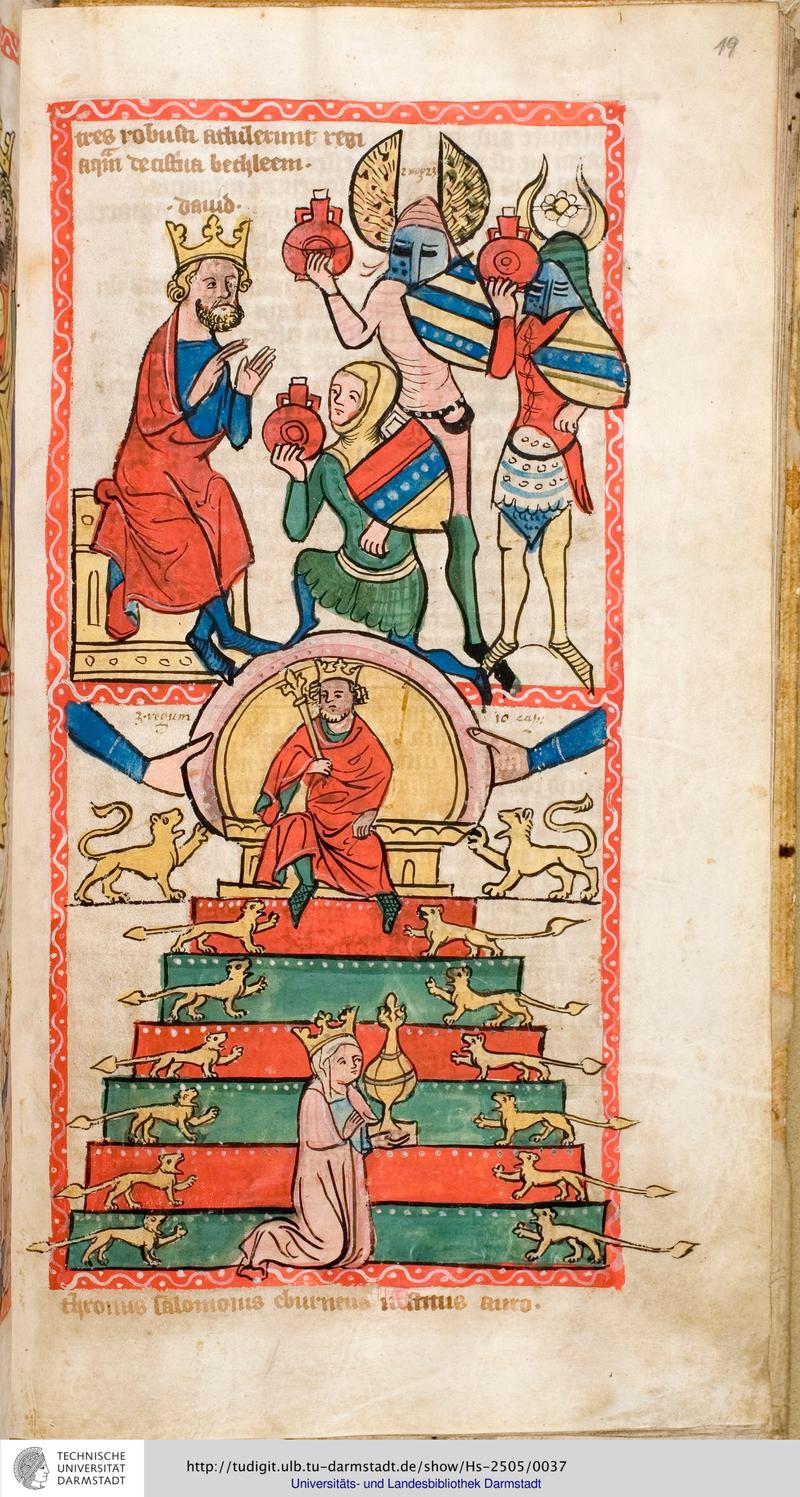 19
tres robusti attulerunt regi
aqua(m) de cist(er)na bethleem.
.dauid.
2 reg 23
3. regum
10 cap:
thronus salomonis eburneus uestitus auro.
TECHNISCHE
UNIVERSITÄT
DARMSTADT
http://tudigit.ulb.tu-darmstadt.de/show/Hs-2505/0037
Universitäts- und Landesbibliothek Darmstadt